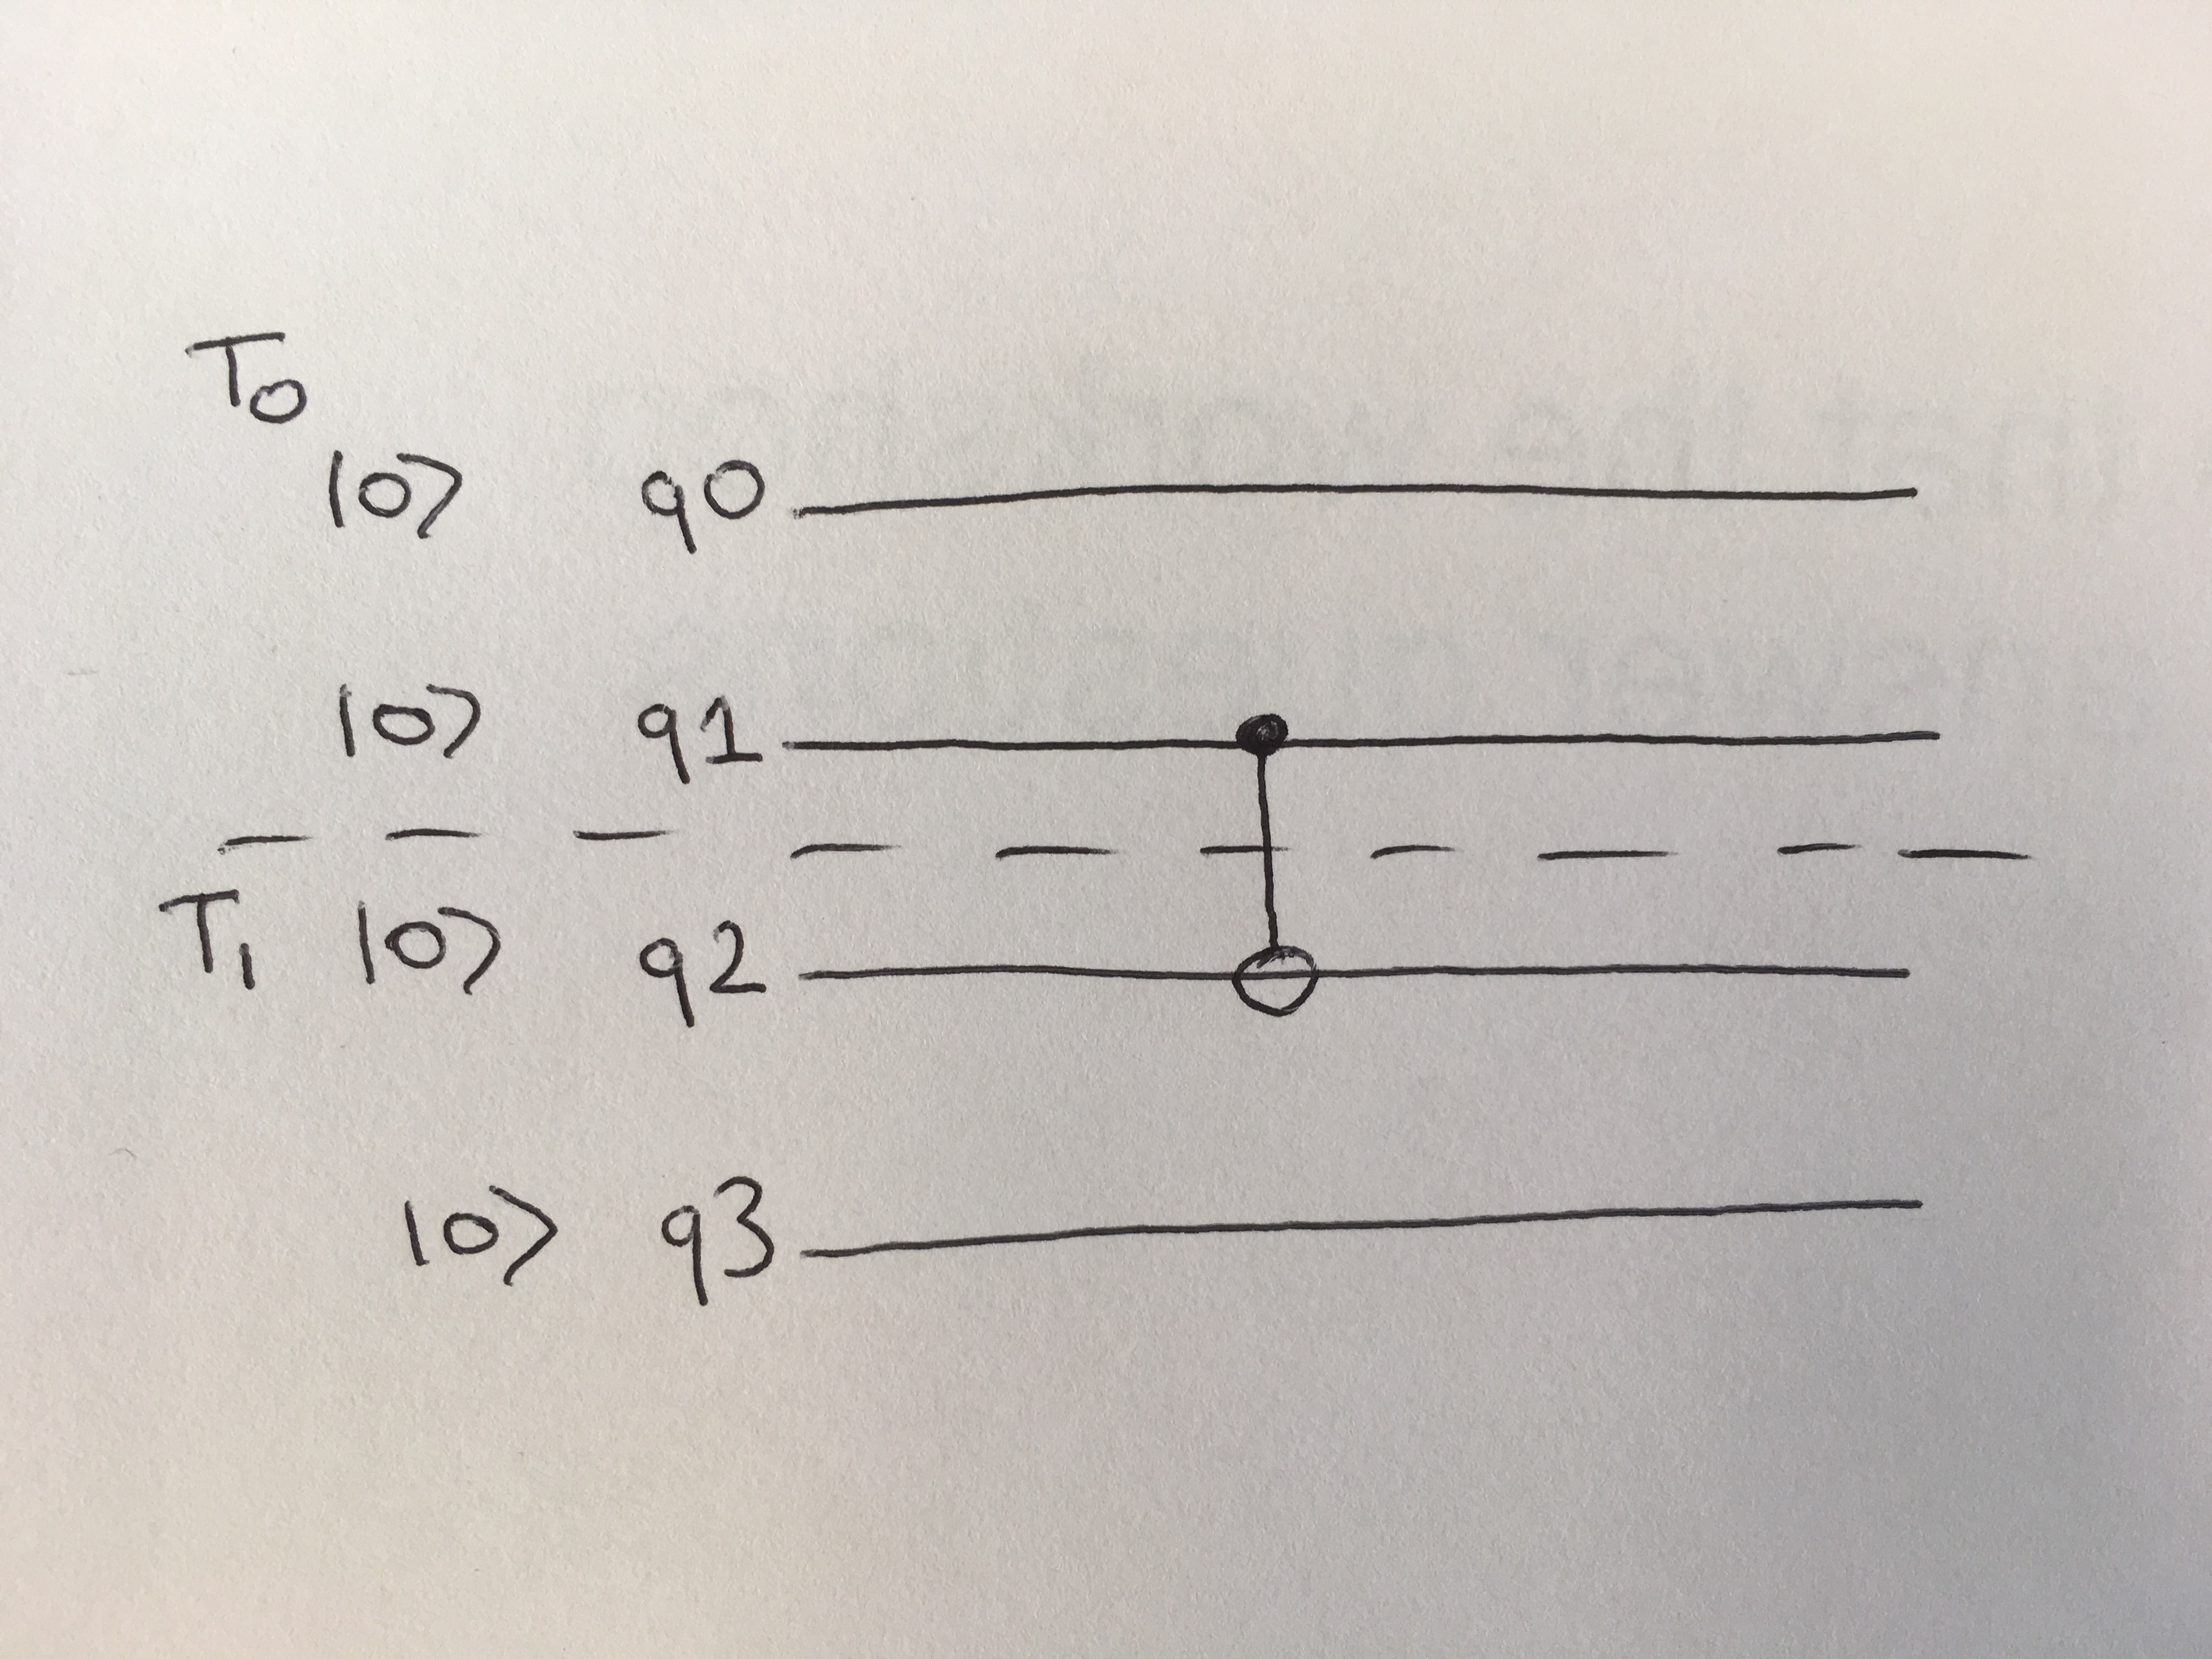 T0
|0⟩ q0
|0⟩ q1
T1 |0⟩ q2
|0⟩ q3